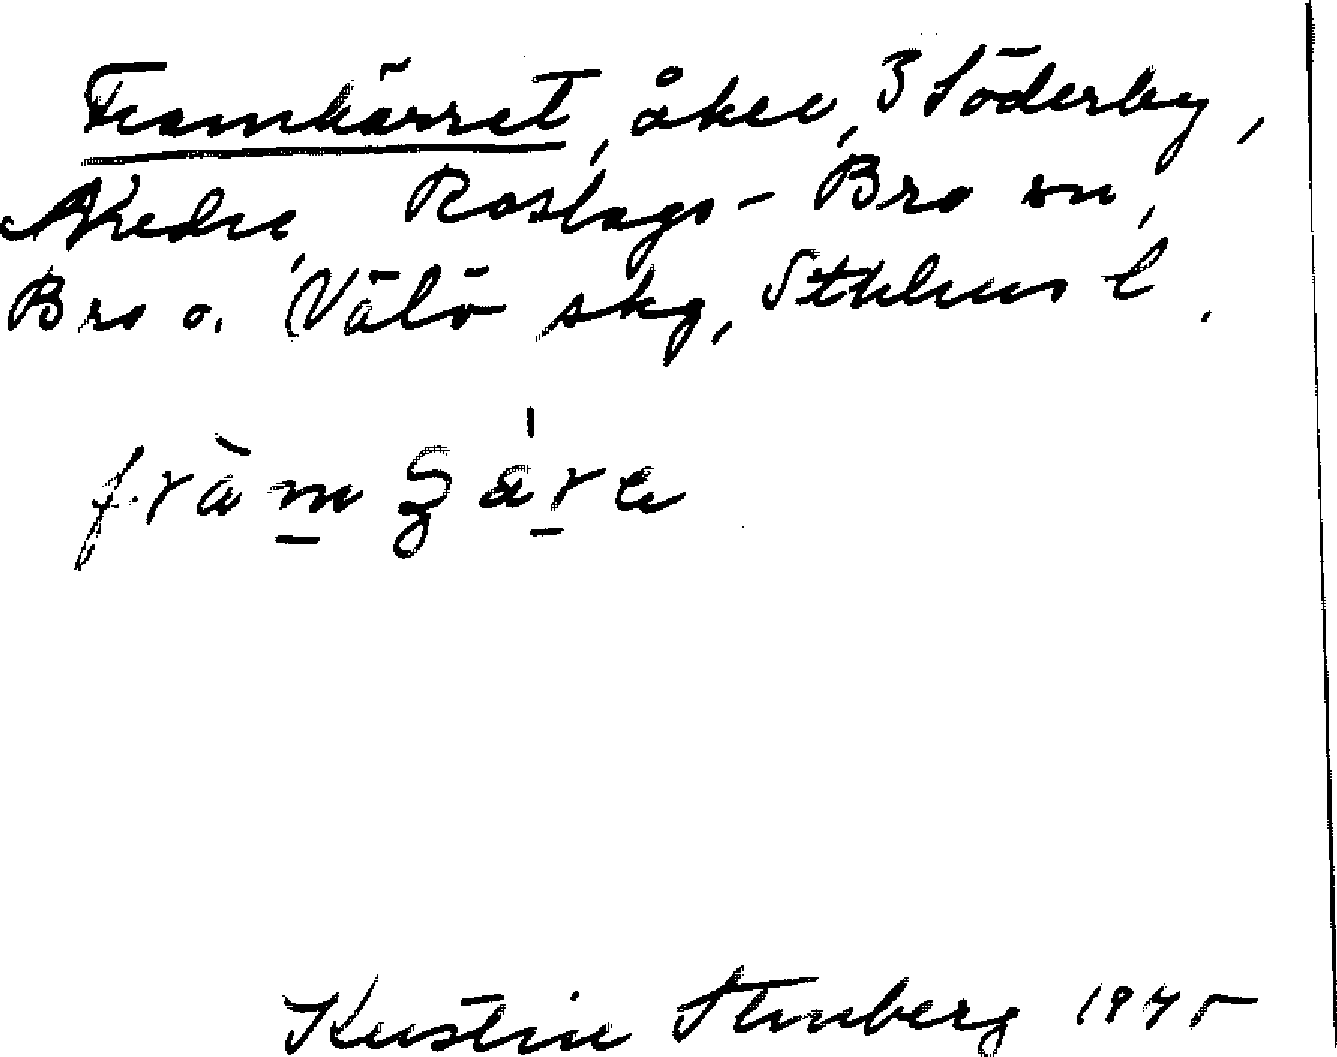 Framkärret, åker, 3 Söderby,
Nedre, Roslags-Bro sn,
Bro o. Välö skg, Sthlms l.
Kerstin Stenberg 1945